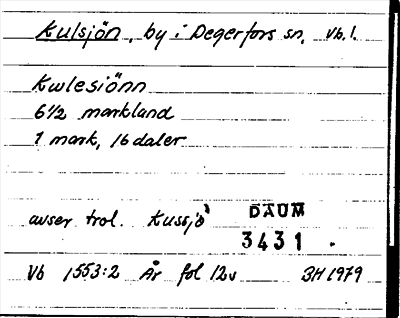 Kulsjön, by i Degerfors sn, Vb.l.
Kwlesiönn
6 1/2 markland
1 mark, 16 daler
avser trol. Kussjö
DAUM
3431.
Vb 1553:2 År fol 12v BH 1979